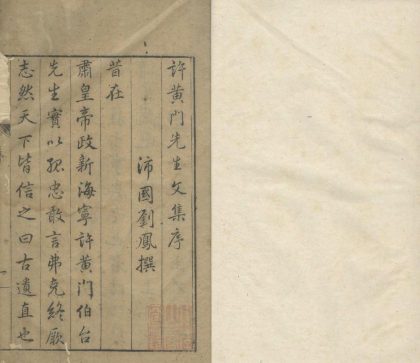 許黄门先生文集序
沛國劉鳳撰
昔在
肅皇帝政新海寧許黄门伯台
先生實以孤忠敢言弗克終厥
志然天下皆信之曰古遺直也